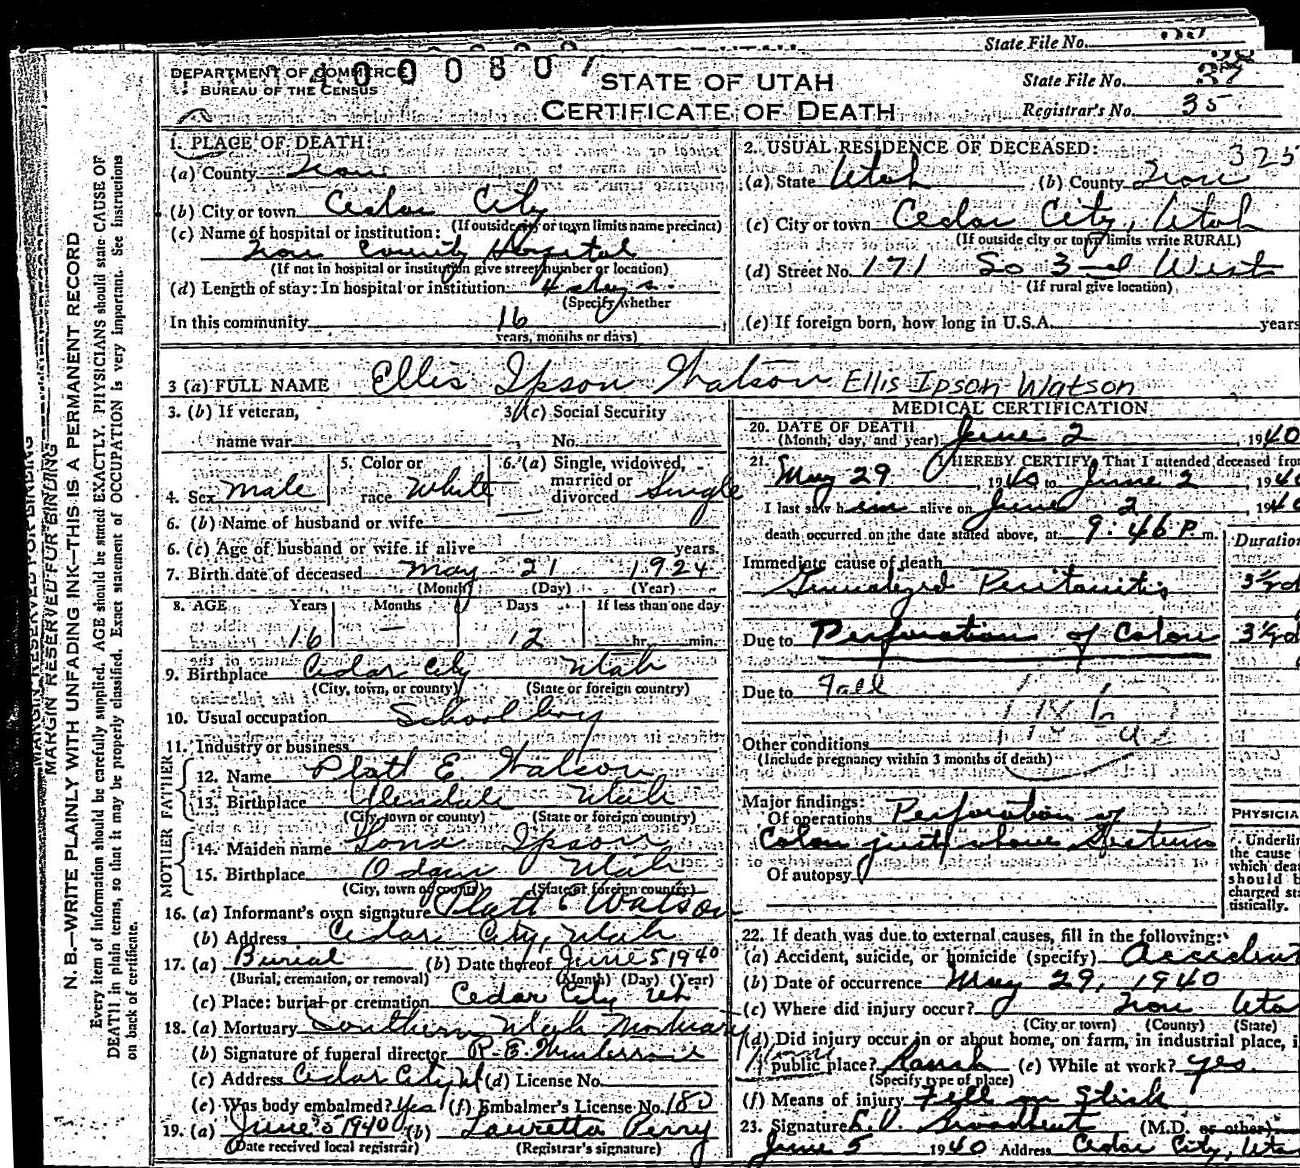 State File No.
DEPARTMENT OF COMMERCE
BUREAU OF THE CENSUS
STATE OF UTAH
CERTIFICATE OF DEATH
State File No. 37
Registrar's No. 35
MARGIN RESERVED FOR BINDING
N. B.—WRITE PLAINLY WITH UNFADING INK—THIS IS A PERMANENT RECORD
Every item of information should be carefully supplied. AGE should be stated EXACTLY. PHYSICIANS should state CAUSE OF
DEATH in plain terms, so that it may be properly classified. Exact statement of OCCUPATION is very important. See instructions
on back of certificate.
1. PLACE OF DEATH:
(a) County Iron
(b) City or town Cedar City
(If outside city or town limits name precinct)
(c) Name of hospital or institution:
Iron County Hospital
(If not in hospital or institution give street number or location)
(d) Length of stay: In hospital or institution 4 days
(Specify whether
In this community 16
years, months or days)
2. USUAL RESIDENCE OF DECEASED: 325
(a) State Utah (b) County Iron
(c) City or town Cedar City, Utah
(If outside city or town limits write RURAL)
(d) Street No. 171 So 3rd West
(If rural give location)
(e) If foreign born, how long in U.S.A. years
3 (a) FULL NAME Ellis Ipson Watson Ellis Ipson Watson
3. (b) If veteran,
name war
3. (c) Social Security
No.
4. Sex Male
5. Color or
race White
6. (a) Single, widowed,
married or
divorced Single
6. (b) Name of husband or wife
6. (c) Age of husband or wife if alive years.
7. Birth date of deceased May 21 1924
(Month) (Day) (Year)
8. AGE Years Months Days If less than one day
16 — 12 hr. min.
9. Birthplace Cedar City Utah
(City, town, or county) (State or foreign country)
10. Usual occupation School boy
11. Industry or business
FATHER
12. Name Platt E. Watson
13. Birthplace Glendale Utah
(City, town or county) (State or foreign country)
MOTHER
14. Maiden name Ipson
15. Birthplace Utah
(City, town or county) (State or foreign country)
16. (a) Informant's own signature Platt E Watson
(b) Address Cedar City, Utah
17. (a) Burial (b) Date thereof June 5 1940
(Burial, cremation, or removal) (Month) (Day) (Year)
(c) Place: burial or cremation Cedar City Ut
18. (a) Mortuary Southern Utah Mortuary
(b) Signature of funeral director R. E.
(c) Address Cedar City Ut (d) License No.
(e) Was body embalmed? Yes (f) Embalmer's License No. 180
19. (a) June 5 1940 (b) Lauretta Perry
(Date received local registrar) (Registrar's signature)
MEDICAL CERTIFICATION
20. DATE OF DEATH
(Month, day, and year) June 2, 1940
21. I HEREBY CERTIFY, That I attended deceased from
May 29 1940 to June 2, 1940
I last saw him alive on June 2, 1940
death occurred on the date stated above, at 9:46 P. m.
Duration
Immediate cause of death
Generalized Peritonitis
Due to Perforation of Colon
Due to Fall
Other conditions
(Include pregnancy within 3 months of death)
Major findings:
Of operations Perforation of
Colon just above Rectum
Of autopsy
PHYSICIA
Underlin
the cause
which dea
should b
charged sta
tistically.
22. If death was due to external causes, fill in the following:
(a) Accident, suicide, or homicide (specify) Accident
(b) Date of occurrence May 29, 1940
(c) Where did injury occur? Iron Uta
(City or town) (County) (State)
(d) Did injury occur in or about home, on farm, in industrial place, i
public place? Ranch (e) While at work? yes.
(Specify type of place)
(f) Means of injury Fell on Stick
23. Signature Broadbent (M.D. or other)
June 5 1940 Address Cedar City, Uta